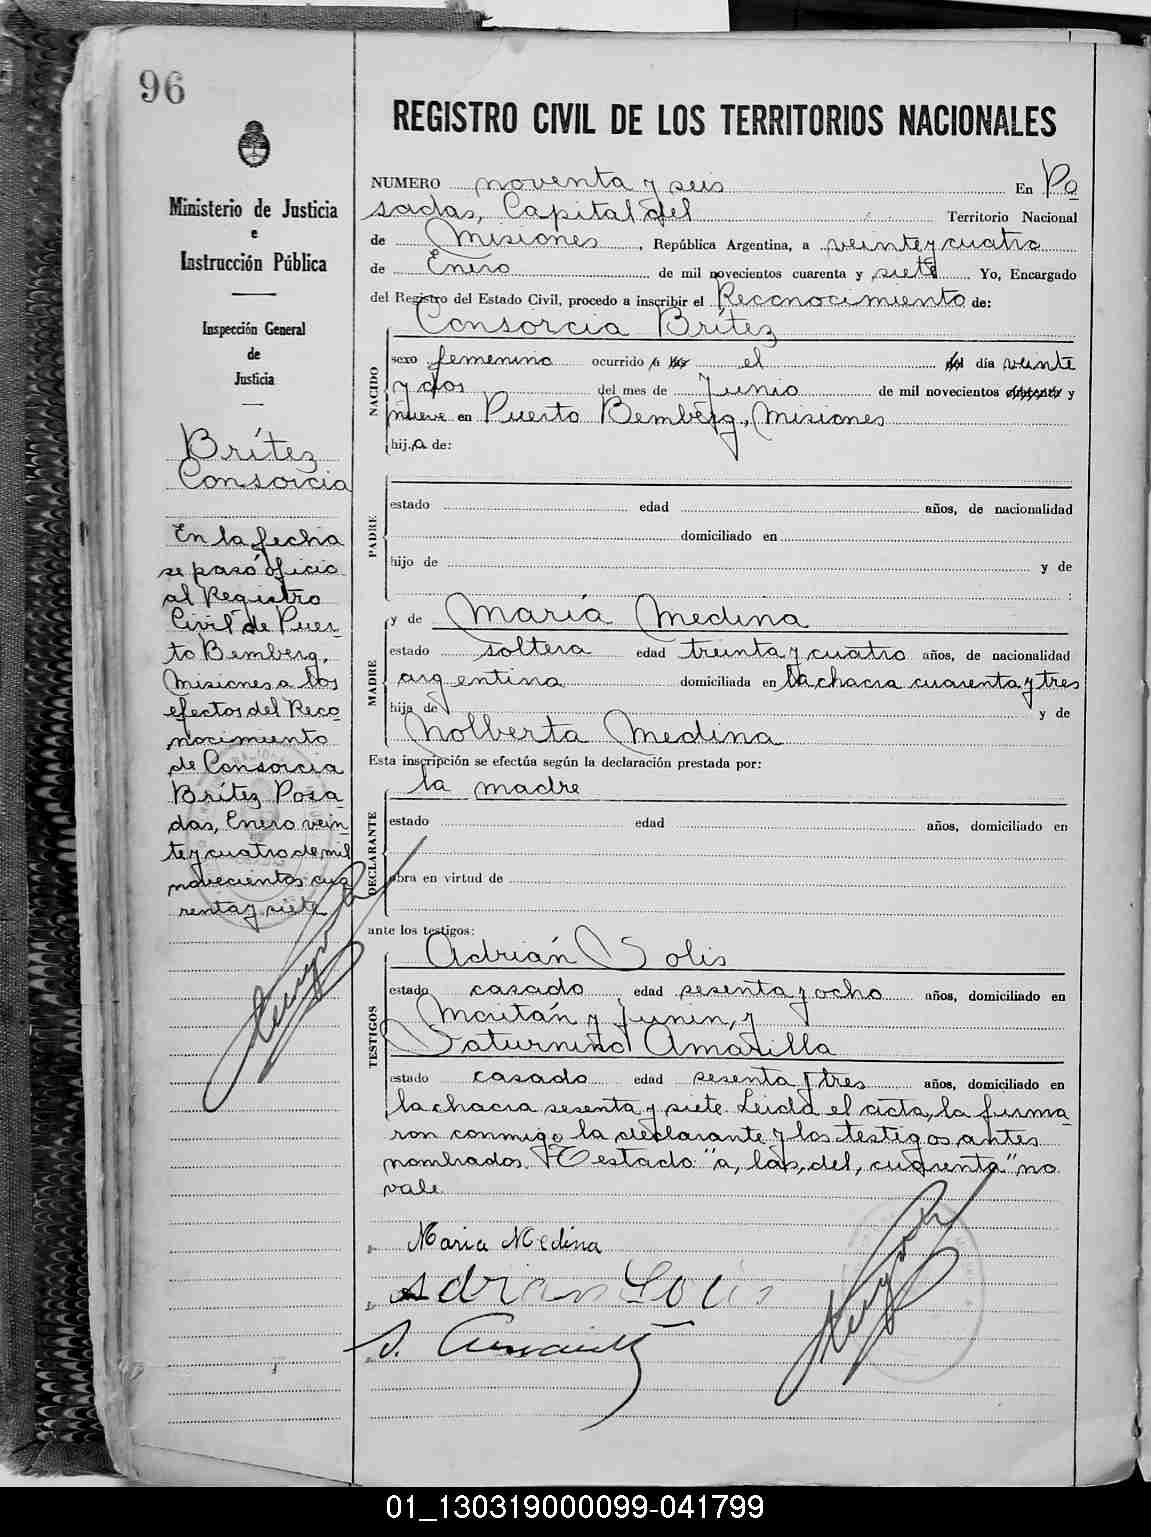 96
Ministerio de Justicia
e
Instrucción Pública
Inspección General
de
Justicia
Brítez
Consorcia
En la fecha
se pasó oficio
al Registro
Civil de Puer-
to Bemberg,
Misiones a los
efectos del Reco-
nocimiento
de Consorcia
Brítez Posa-
das, Enero vein-
te y cuatro de mil
novecientos cua-
renta y siete
REGISTRO CIVIL DE LOS TERRITORIOS NACIONALES
NUMERO noventa y seis En Po
sadas, Capital del Territorio Nacional
de Misiones, República Argentina, a veinte y cuatro
de Enero de mil novecientos cuarenta y siete Yo, Encargado
del Registro del Estado Civil, procedo a inscribir el Reconocimiento de:
NACIDO
Consorcia Brítez
sexo femenino ocurrido a las el del día veinte
y dos del mes de Junio de mil novecientos cuarenta y
nueve en Puerto Bemberg, Misiones
hij a de:
PADRE
estado edad años, de nacionalidad
domiciliado en
hijo de y de
:
MADRE
y de María Medina
estado soltera edad treinta y cuatro años, de nacionalidad
argentina domiciliada en la chacra cuarenta y tres
hija de y de
Nolberta Medina
Esta inscripción se efectúa según la declaración prestada por:
DECLARANTE
la madre
estado edad años, domiciliado en
obra en virtud de
ante los testigos:
TESTIGOS
Adrián Solis
estado casado edad sesenta y ocho años, domiciliado en
y Junin, y
Saturnino Amarilla
estado casado edad sesenta y tres años, domiciliado en
la chacra sesenta y siete. Leida el acta, la firma-
ron conmigo la declarante y los testigos antes
nombrados. Testado "a, las, del, cuarenta" no
vale
Maria Medina
Adrian Solis
01_130319000099-041799